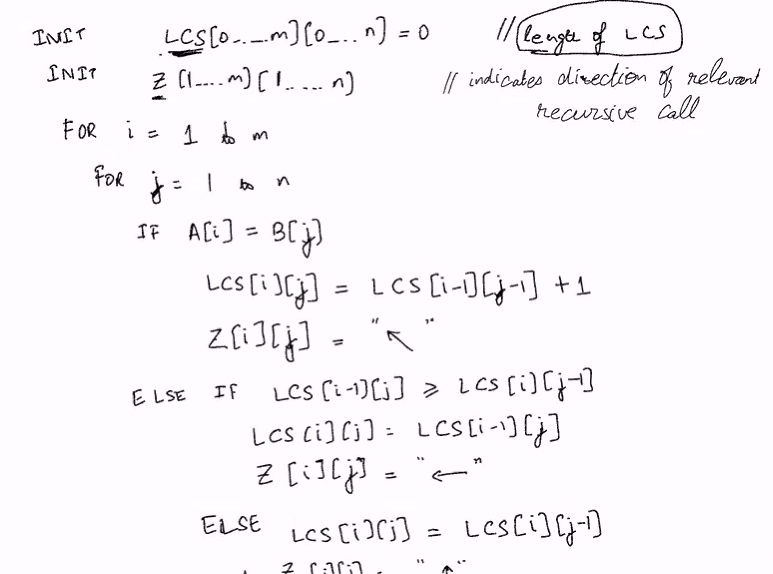 INIT LCS[0...m][0...n] = 0 //length of LCS
INIT Z[1....m][1.....n] // indicates direction of relevant
recursive call
FOR i = 1 to m
FOR j = 1 to n
IF A[i] = B[j]
LCS[i][j] = LCS[i-1][j-1] + 1
Z[i][j] = "↖"
ELSE IF LCS[i-1][j] ≥ LCS[i][j-1]
LCS[i][j] = LCS[i-1][j]
Z[i][j] = "←"
ELSE LCS[i][j] = LCS[i][j-1]
Z[i][j] = "↑"